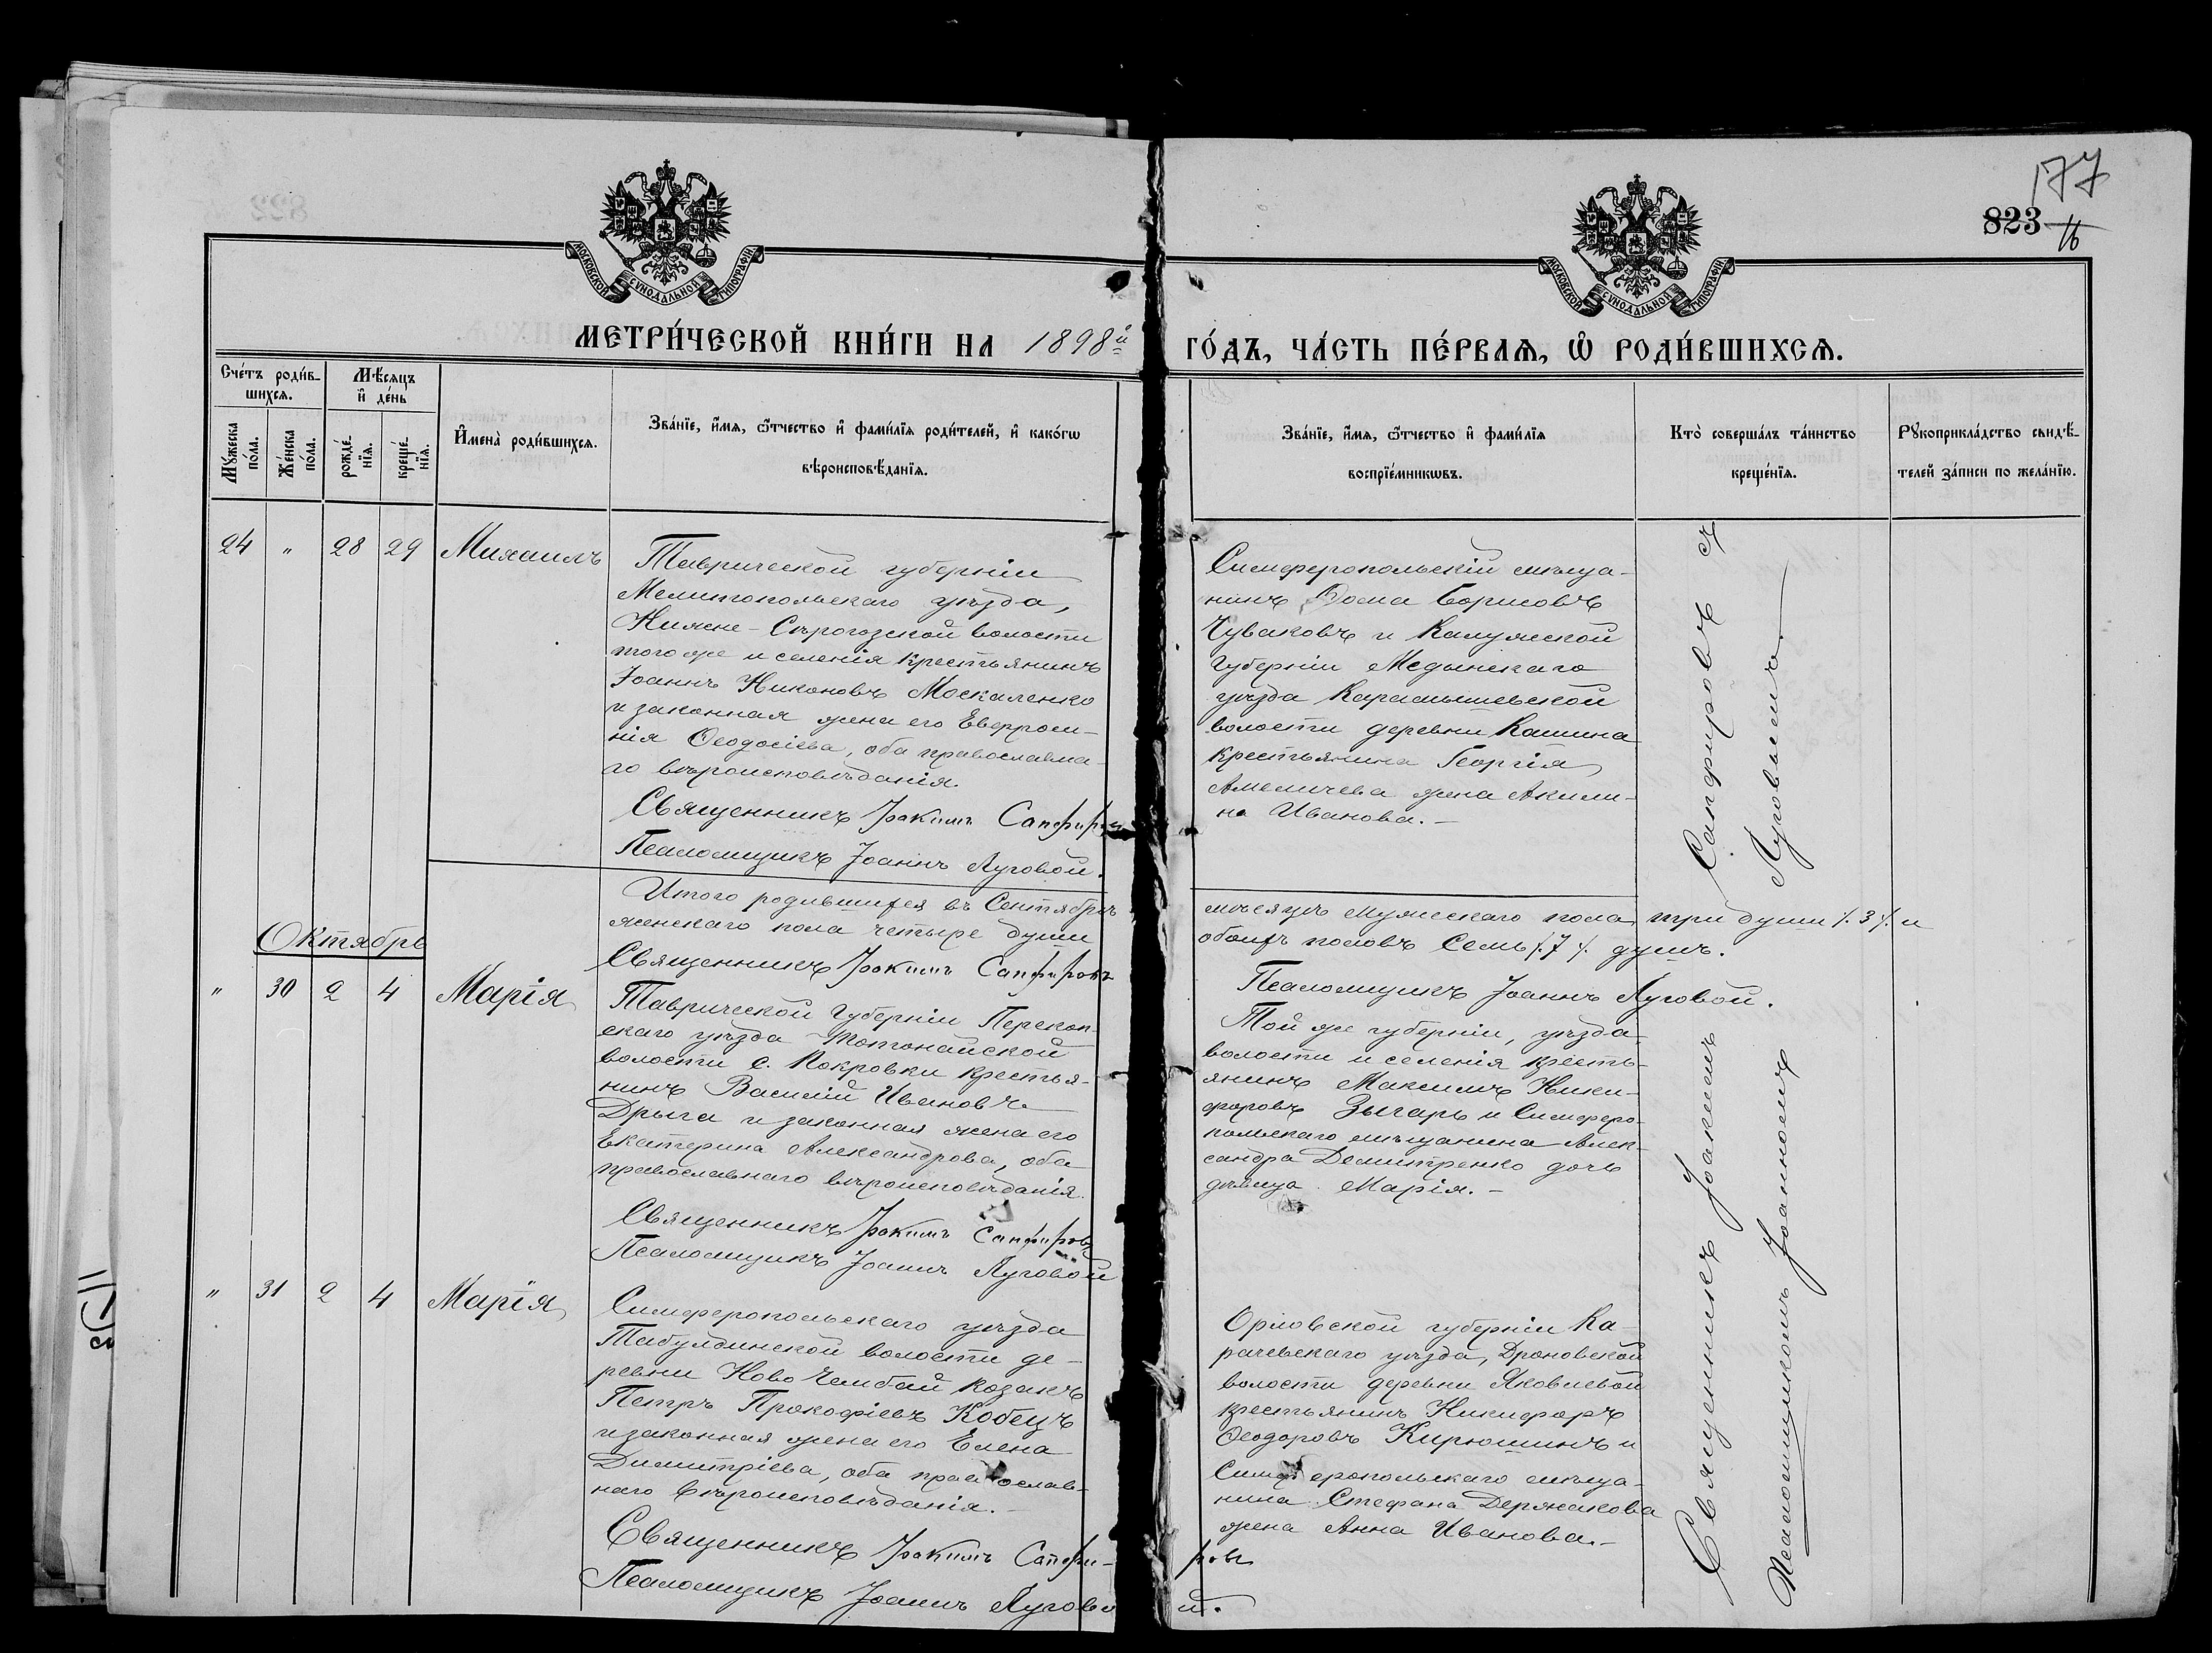 177
823
16
МОСКОВСКОЙ СѴНОДАЛЬНОЙ ТИПОГРАФІИ.
МОСКОВСКОЙ СѴНОДАЛЬНОЙ ТИПОГРАФІИ.
МЕТРИ́ЧЕСКОЙ КНИ́ГИ НА 1898й ГО́ДЪ, ЧА́СТЬ ПЕ́РВАЯ, Ѡ҆ РОДИ́ВШИХСЯ.
Сче́тъ роди́в-
шихся.
Мѣ́сяцъ
и҆ де́нь
Мꙋ́жеска
по́ла.
Же́нска
по́ла.
рожде́-
нїя.
креще́-
нїя.
И҆мена̀ роди́вшихся.
Зва́нїе, и҆́мя, ѻ҆́тчество и҆ фами́лїя роди́телей, и҆ како́гѡ
вѣроисповѣ́данїя.
Зва́нїе, и҆́мя, ѻ҆́тчество и҆ фами́лїя
воспрїе́мникѡвъ.
Кто̀ соверша́лъ та́инство
креще́нїя.
Рꙋкоприкла́дство свидѣ́-
телей за́писи по жела́нїю.
24 " 28 29 Михаилъ
Таврической губерніи
Мелитопольскаго уѣзда,
Нижне-Сѣрогозской волости
того же и селенія крестьянинъ
Іоаннъ Никоновъ Москаленко
и законная жена его Евфроси-
нія Ѳеодосіева, оба православна-
го вѣроисповѣданія.
Священникъ Іоакимъ Сапфировъ
Псаломщикъ Іоаннъ Луговой.
Симферопольскій мѣща-
нинъ Ѳома Борисовъ
Чуваковъ и Калужской
губерніи Медынскаго
уѣзда Карамышевской
волости деревни Кашина
крестьянина Георгія
Амеличева жена Акили-
на Иванова.-
Итого родившихся въ Сентябрѣ
женскаго пола четыре души
мѣсяцѣ мужескаго пола три души /.3/. и
обоихъ половъ Семь /.7/. душъ.
Священникъ Іоакимъ Сапфировъ
Псаломщикъ Іоаннъ Луговой.
Октябрь
" 30 2 4 Марія
Таврической Губерніи Перекоп-
скаго уѣзда Тотонайской
волости с. Покровки крестья-
нинъ Василій Ивановъ
Дрыга и законная жена его
Екатерина Александрова, оба
православнаго вѣроисповѣданія.
Священникъ Іоакимъ Сапфировъ
Псаломщикъ Іоаннъ Луговой
Той же губерніи, уѣзда
волости и селенія кресть-
янинъ Максимъ Ники-
форовъ Зыгарь и Симферо-
польскаго мѣщанина Алек-
сандра Демитренко дочь
дѣвица Марія.-
" 31 2 4 Марія
Симферопольскаго уѣзда
Табулдинской волости де-
ревни Ново Чембай козакъ
Петръ Прокофіевъ Кобецъ
и законная жена его Елена
Димитріева, оба православ-
наго вѣроисповѣданія.-
Священникъ Іоакимъ Сапфи-
ровъ
Псаломщикъ Іоаннъ Луговой.
Орловской губерніи Ка-
рачевскаго уѣзда, Дроновской
волости деревни Яковлевой
крестьянинъ Никифоръ
Ѳеодоровъ Кирюшинъ и
Симферопольскаго мѣща-
нина Стефана Держакова
жена Анна Иванова.-
Священникъ Іоакимъ Сапфировъ съ
Псаломщикомъ Іоанномъ Луговымъ.